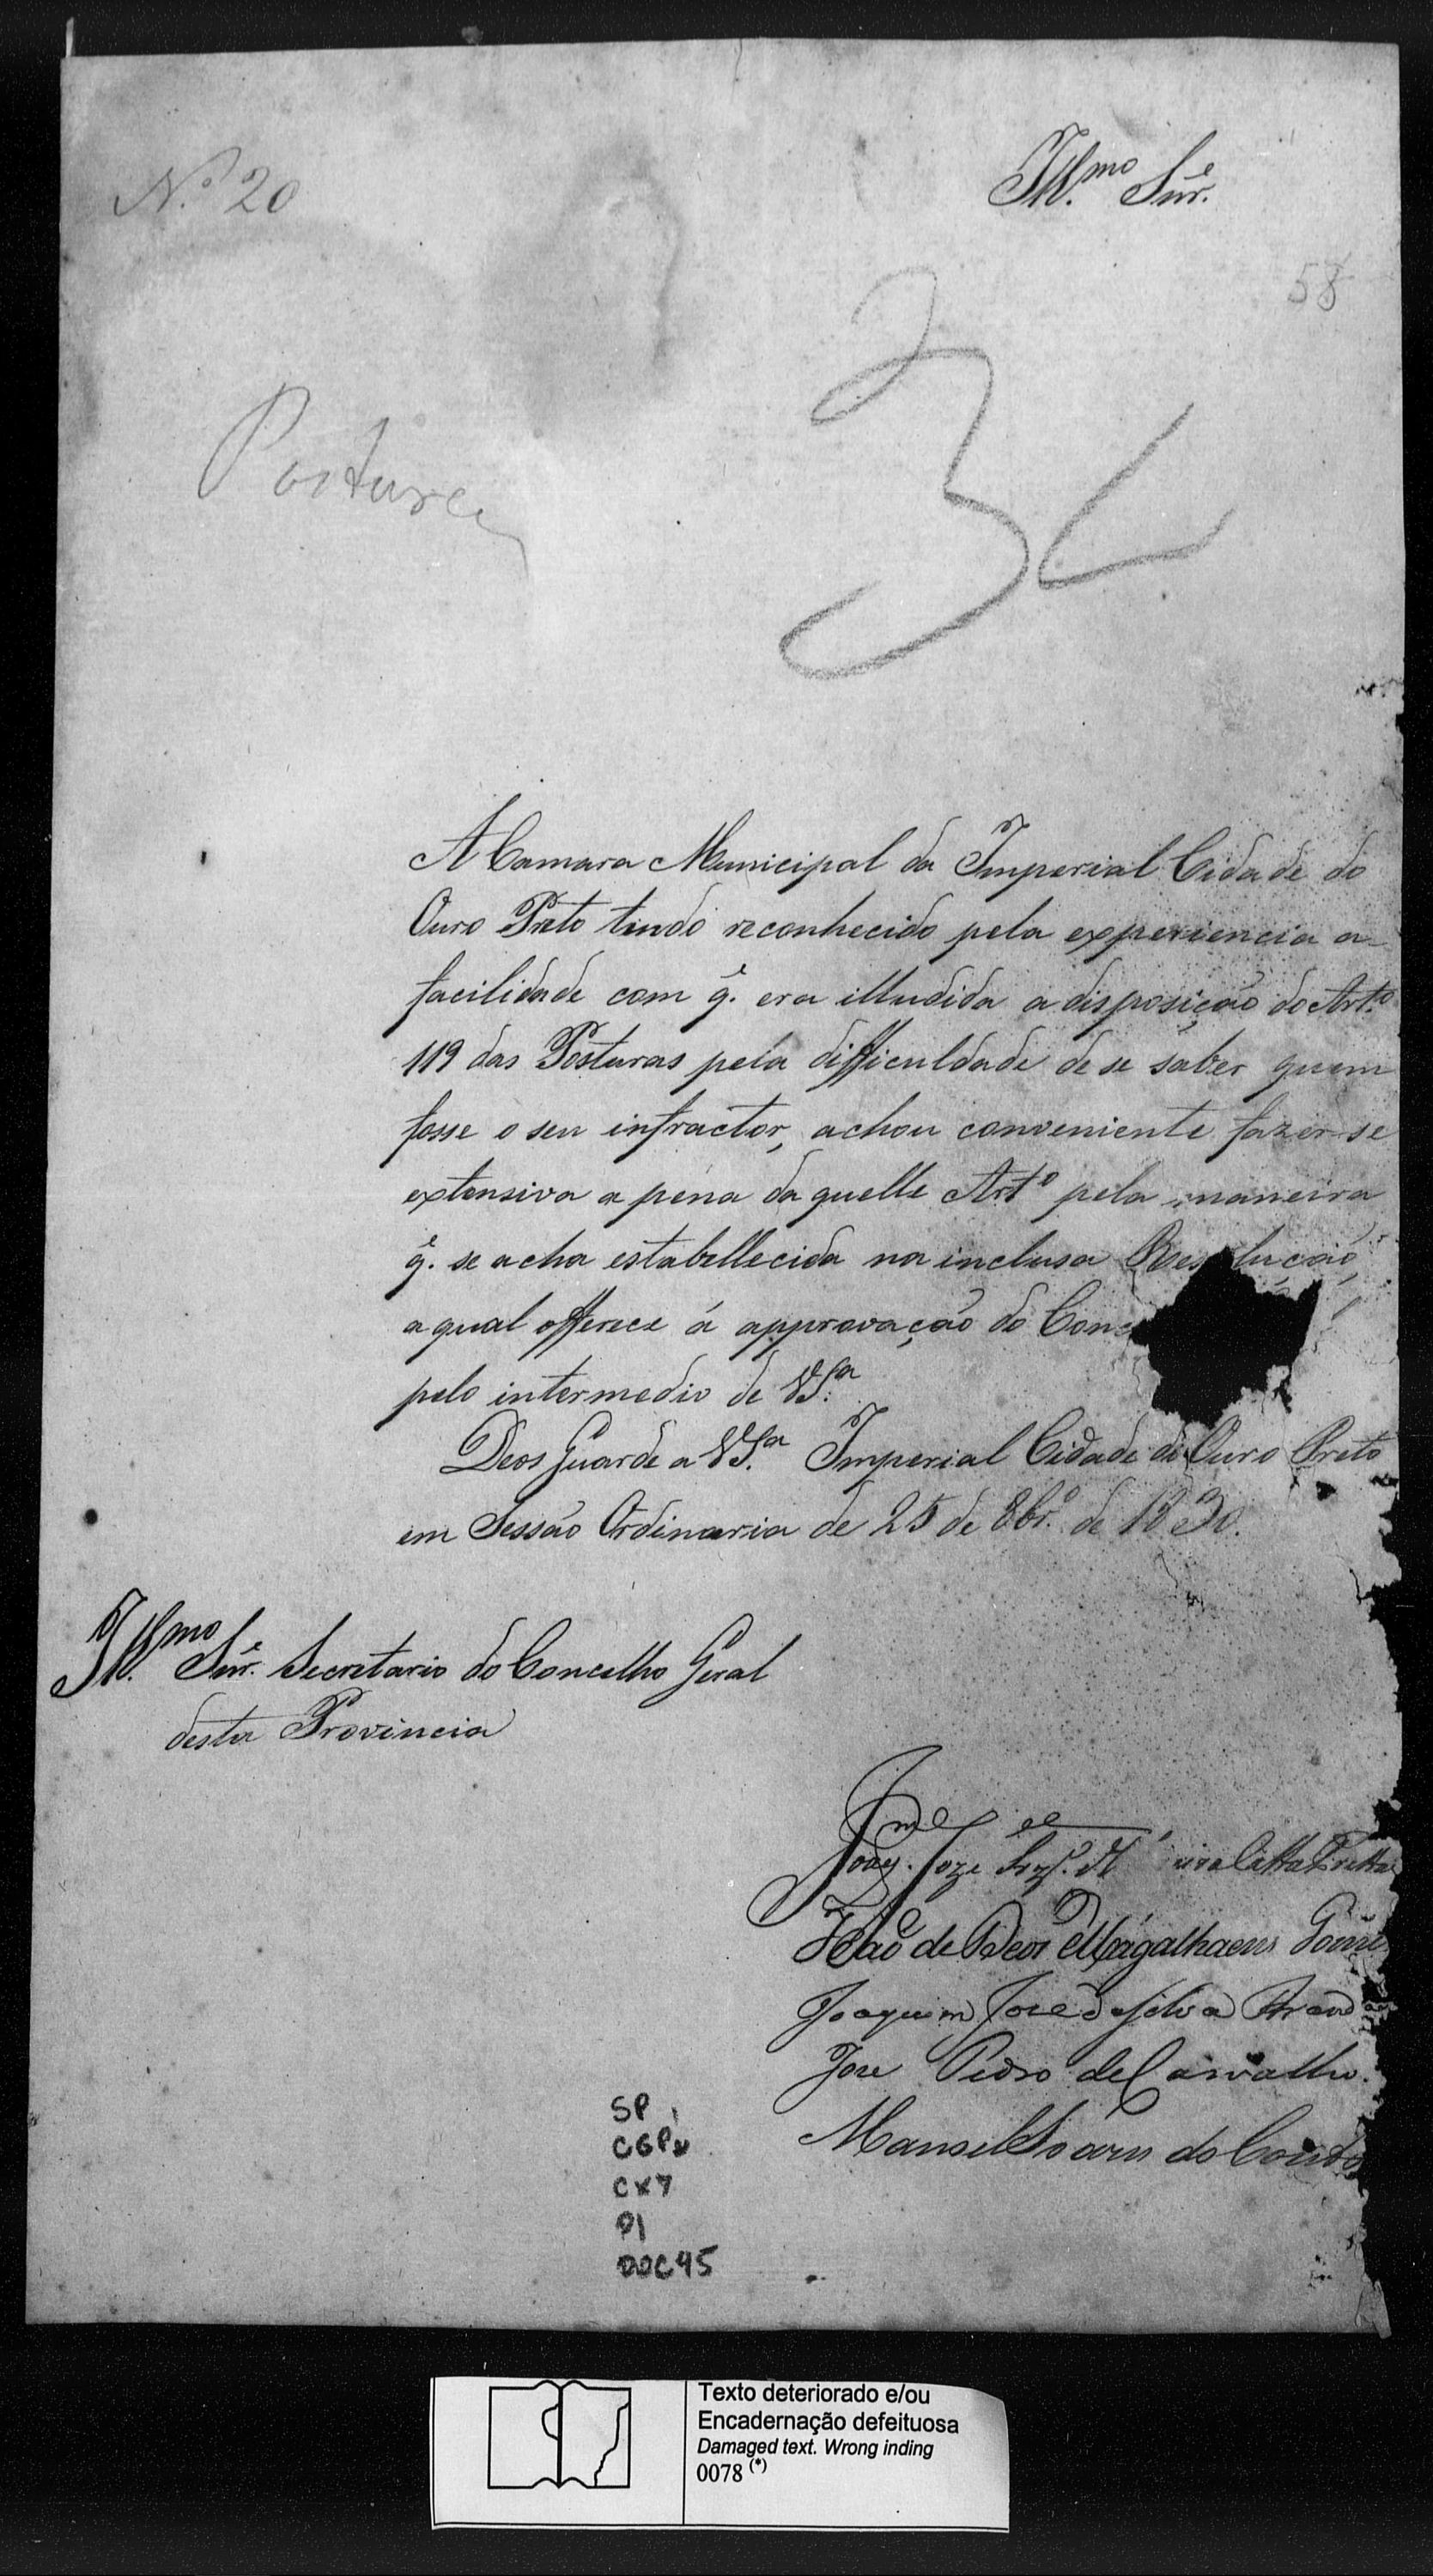 N.º 20
Ill.mo Snr.
58
Posturas
A Camara Municipal da Imperial Cidade do
Ouro Preto tendo reconhecido pela experiencia a
facilidade com q̃. era illudida a disposição do Art.º
119 das Posturas pela difficuldade de se saber quem
fosse o seu infractor, achou conveniente fazer-se
extensiva a pena daquelle Artº pela maneira
q̃. se acha estabellecida na inclusa Res lução,
a qual offerece á approvação do Conc
pelo intermedio de VS.ª
Deos Guarde a VS.ª Imperial Cidade do Ouro Preto
em Sessão Ordinaria de 25 de 8br.º de 1830.
Ill.mo Snr. Secretario do Concelho Geral
desta Provincia
João de Deos Magalhaens Gome
Joaquim Jose da Silva Brand
Jose Pedro de Carvalho.
Manoel Soares do Couto
SP
CGP
CX7
P1
DOC45
Texto deteriorado e/ou
Encadernação defeituosa
Damaged text. Wrong inding
0078 (*)